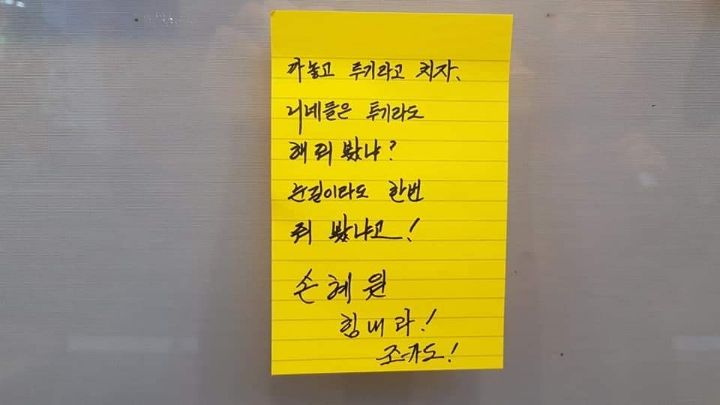 까놓고 투기라고 치자.
니네들은 투기라도
해 줘 봤냐?
눈길이라도 한번
줘 봤냐고!
손혜원
힘내라!
조카도!